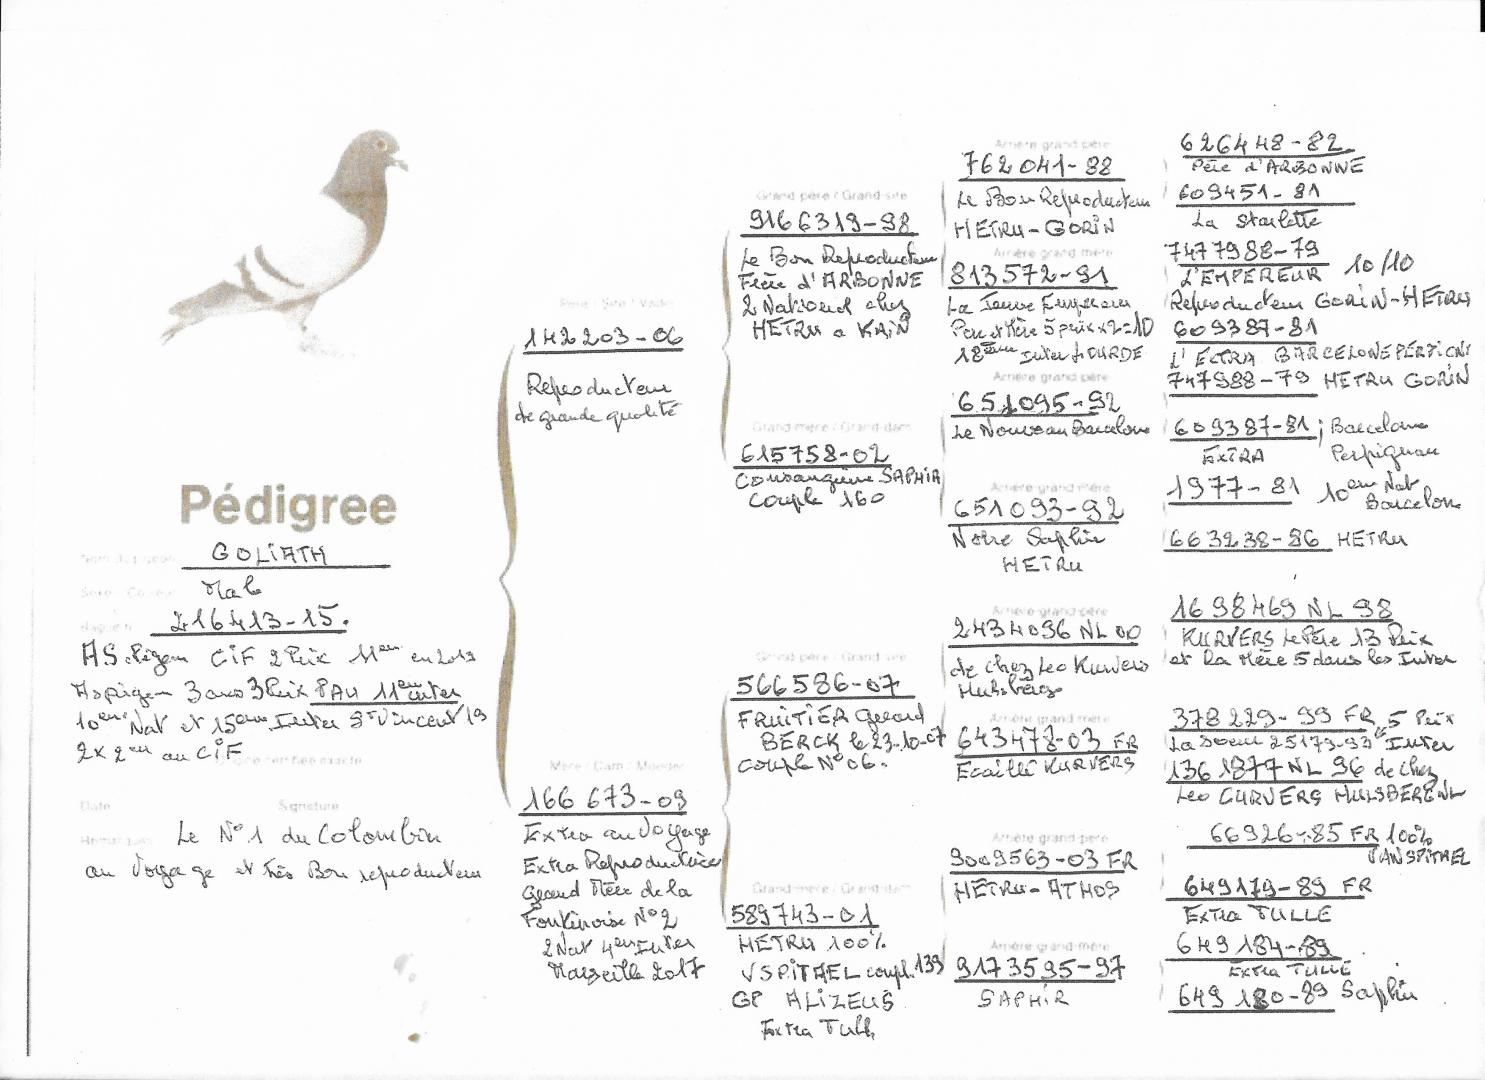 Pédigree
GOLIATH
Male
216413-15.
AS pigeon CIF 2 Prix 11em en 2019
As pigeon 3 ans 3 Prix PAU 11em inter
10em Nat et 15em Inter St Vincent 19
2x 2em au CIF
Date Signature
Le N°1 du Colombier
au Voyage et très Bon reproducteur
142203-06
Reproducteur
de grande qualité
166 673-09
Extra au Voyage
Extra Reproductrice
Grand Mère de la
N°2
2 Nat 4em Inter
Marseille 2017
Grand père / Grand-sire
9166319-98
Le Bon Reproducteur
Frère d'ARBONNE
2 National chez
HETRU a KAIN
Grand-mère / Grand-dam
615758-02
Consanguine SAPHIR
Couple 160
566586-07
FRUITIER Gerard
BERCK le 23-10-07
Couple N°06.
Grand-mère / Grand-dam
589743-01
HETRU 100%
VSPITAEL coupl. 139
GP ALIZEUS
Extra Tulle
Arrière grand-père
762041-88
Le Bon Reproducteur
HETRU-GORIN
Arrière grand-mère
813572-91
La Jeune
Père et Mère 5 prix x2=10
18em Inter LOURDE
Arrière grand-père
651095-92
Le Nouveau Barcelone
Arrière grand-mère
651093-92
Notre Saphir
HETRU
Arrière-grand-père
2434096 NL 00
de chez Leo Kurvers
Hulsberg
Arrière grand-mère
643478-03 FR
Ecaillé KURVERS
Arrière grand-père
9009563-03 FR
HETRU-ATHOS
Arrière grand-mère
9173595-97
SAPHIR
626448-82
Père d'ARBONNE
609451-81
La Starlette
7477988-79
L'EMPEREUR 10/10
Reproducteur GORIN-HETRU
609387-81
L'EXTRA BARCELONE
747988-79 HETRU GORIN
609387-81 ; Barcelone
EXTRA Perpignan
1977-81 10em Nat
Barcelone
663238-86 HETRU
1698469 NL 98
KURVERS le Père 13 Prix
et la Mère 5 dans les Inter
378229-99 FR 5 Prix
La Soeur 25179-93 Inter
1361877 NL 96 de chez
Leo CURVERS HULSBERG NL
66926-85 FR 100%
VANSPITAEL
649179-89 FR
Extra TULLE
649184-89
Extra TULLE
649180-89 Saphir